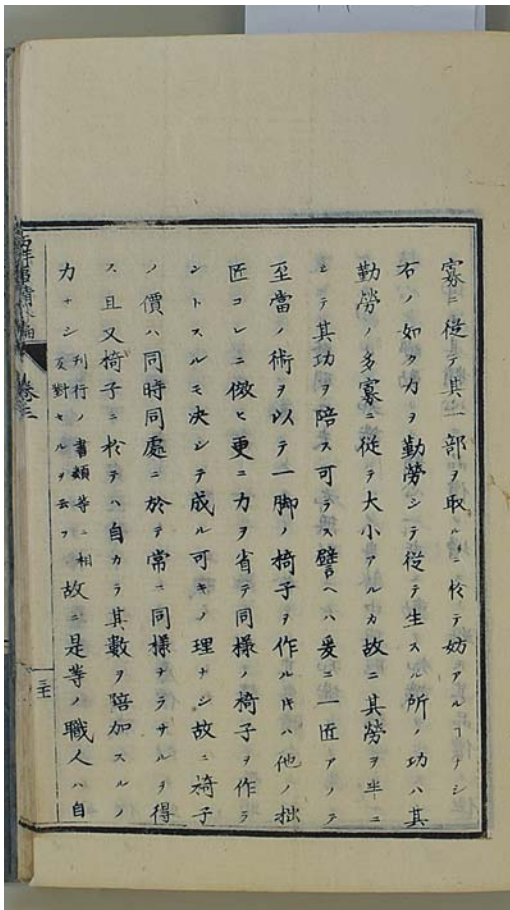 寡ニ従テ其一部ヲ取ルニ於テ妨アルヿナシ
右ノ如ク力ヲ勤勞シテ従テ生スル所ノ功ハ其
勤勞ノ多寡ニ従テ大小アルカ故ニ其勞ヲ半ニ
シテ其功ヲ陪ス可ラス譬ヘハ爰ニ一匠アリテ
至當ノ術ヲ以テ一脚ノ椅子ヲ作ル𪜈ハ他ノ拙
匠コレニ傚ヒ更ニ力ヲ省テ同様ノ椅子ヲ作ラ
ントスルモ决シテ成ル可キノ理ナシ故ニ椅子
ノ價ハ同時同處ニ於テ常ニ同様ナラサルヲ得
ス且又椅子ニ於テハ自カラ其數ヲ陪加スルノ
力ナシ刊行ノ書類等ニ相
反對セルヲ云フ故ニ是等ノ職人ハ自
卷三
三十七